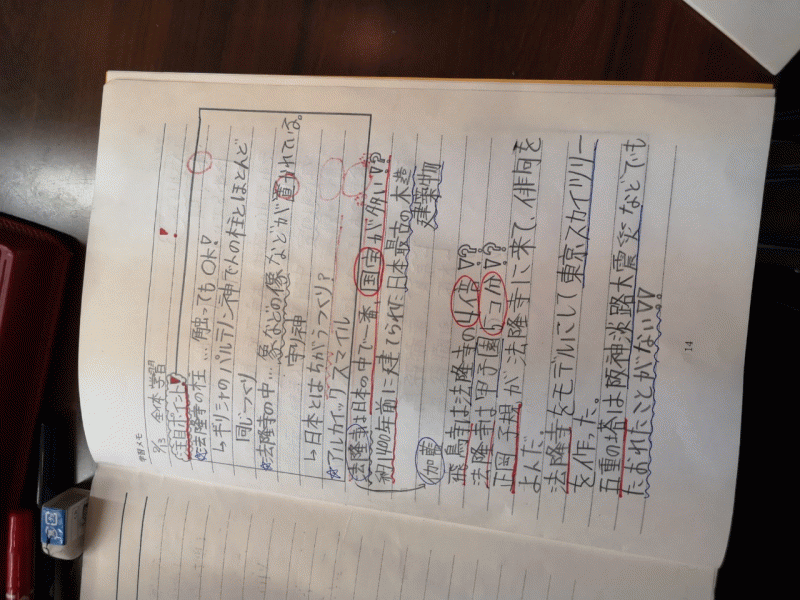 学習メモ
9/13 全体学習
注目ポイント!
☆法隆寺の柱…触ってもOK!
↳ギリシャのパルテノン神でんの柱とほとんど
同じつくり
☆法隆寺の中…象などの像などが置かれている。
守り神
→日本とはちがうつくり?
☆アルカイックスマイル
法隆寺は日本の中で一番国宝が多い!?
約1400年前に建てられた日本最古の木造
建築物
伽藍
飛鳥寺は法隆寺の4倍!?
法隆寺は甲子園 コ分!?
正岡子規が法隆寺に来て、俳句を
よんだ。
法隆寺をモデルにして東京スカイツリー
を作った。
五重の塔は阪神淡路大震災などでも
たおれたことがない!!
14